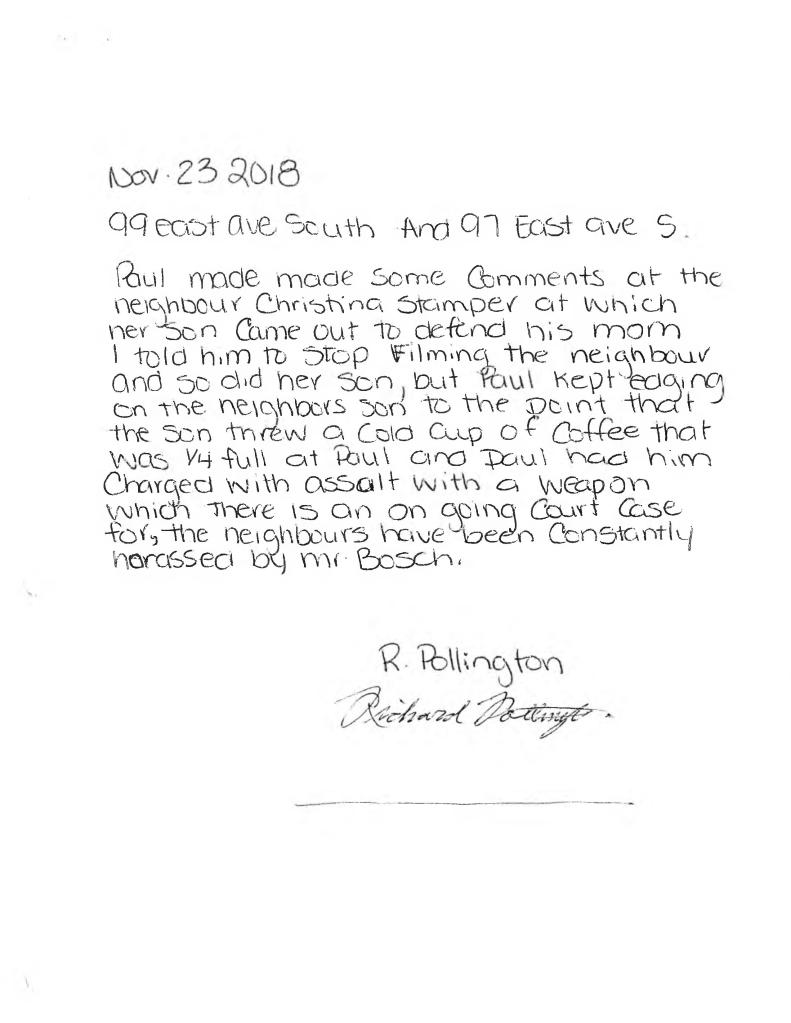 Nov. 23 2018
99 east ave South And 97 East ave S.
Paul made made some Comments at the
neighbour Christina Stamper at which
her son Came out to defend his mom
I told him to Stop Filming the neighbour
and so did her Son, but Paul kept edging
on the neighbors son to the point that
the Son threw a Cold Cup of Coffee that
was 1/4 full at Paul and Paul had him
Charged with assalt with a weapon
which There is an on going Court Case
for, the neighbours have been Constantly
harassed by mr. Bosch.
R. Pollington
Richard Pollington.